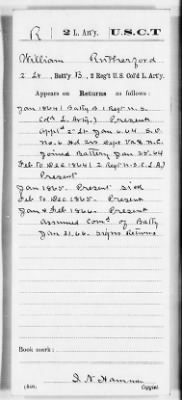 R | 2 L. Art'y. | U.S.C.T
William Rutherford
2 Lt., Batt'y B, 2 Reg't U.S. Col'd L. Art'y.
Appears on Returns as follows:
Jan 1864 Batty B 1 Regt U.S.
Cd L. Arty.) Present
Apptd 2 Lt Jan 6.64 S.O.
No. 6 Hd Qrs Dept Va & N.C.
Joined Battery Jan 25.64
Feb to Dec 1864 (2 Regt U.S.C.L.A)
Present
Jan 1865. Present sick
Feb to Dec 1865. Present
Jan & Feb 1866. Present
assumed Com'd of Batty
Jan 21.66. Signs Returns.
Book mark:
Copyist.